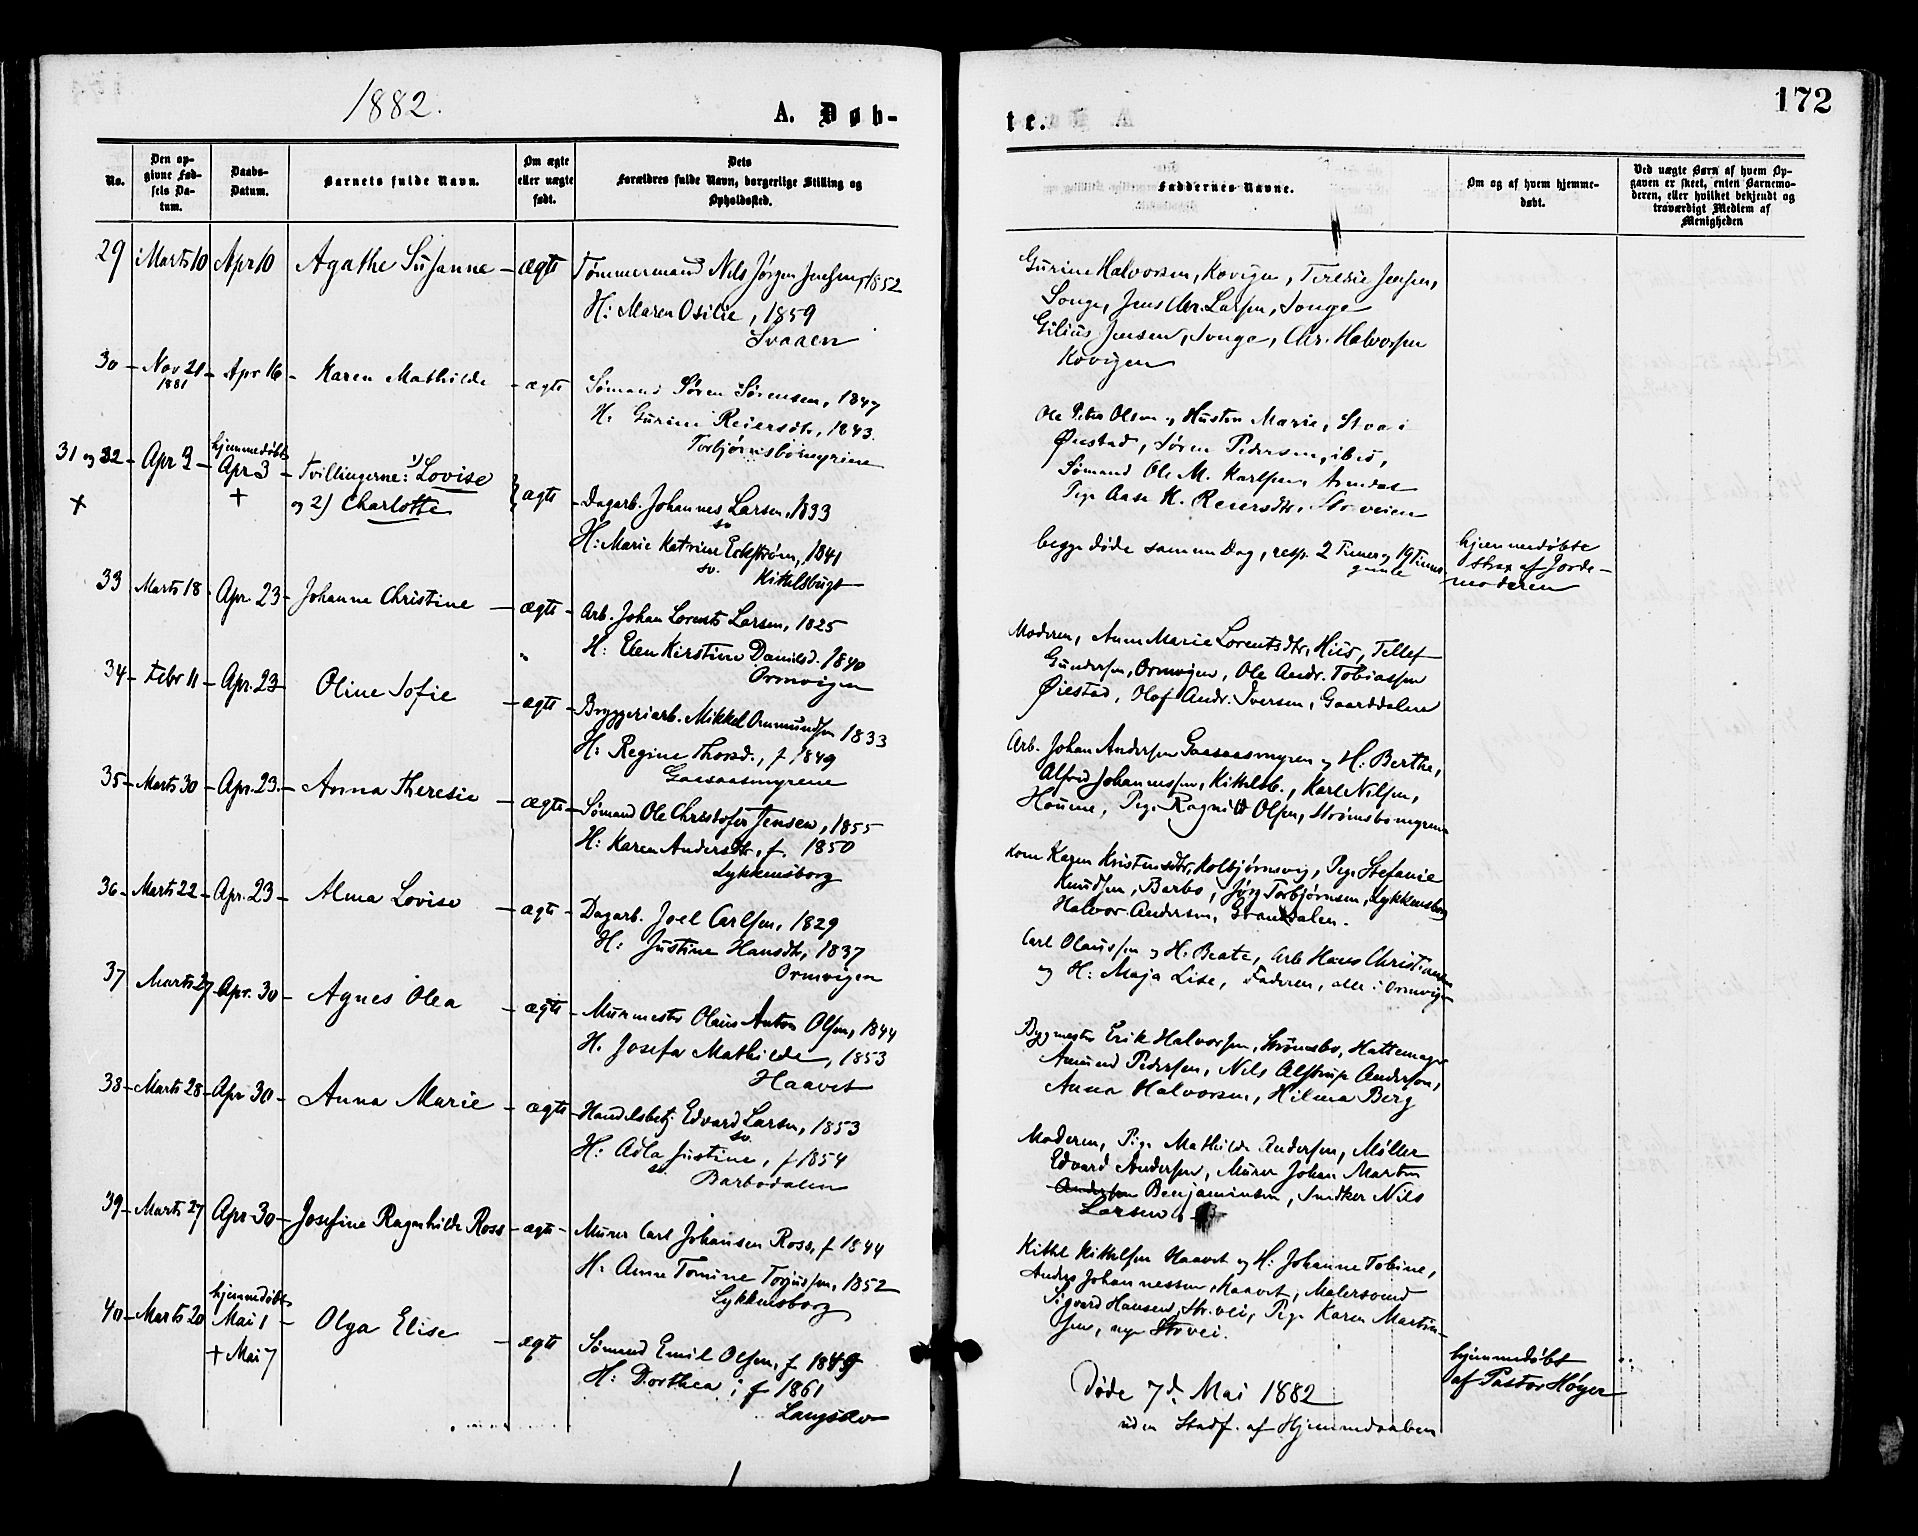 1882.
A. Døb-
No.
Den op-
givne Fød-
sels Da-
tum.
Daabs-
Datum.
Barnets fulde Navn.
Om ægte
eller uægte
født.
Dets
Forældres fulde Navn, borgerlige Stilling og
Opholdssted.
29 Marts 10 Apr 10 Agathe Susanne - ægte Tømmermand Nils Jørgen Jensen, 1852
H: Maren Osilie, 1859
Svaaen
30 - Nov 21 - Apr 16 - Karen Mathilde - ægte Sømand Søren Sørensen, 1847
1881
H. Gurine Reiersdtr, 1843.
Torbjørnsbømyrene
31 og 32 - Apr 3 - hjemmedøbt Apr 3 - Tvillingerne: 1) Lovise
+ + og 2) Charlotte } ægte - Dagarb. Johannes Larsen, 1833
sv.
H: Marie Katrine Eckstrøm, 1841
sv. Kittelsbugt
33 Marts 18 Apr. 23 - Johanne Christine - ægte - Arb. Johan Lorents Larsen, 1825
H: Elen Kirstine Danielsd. 1840
Ormvigen
34 - Febr 11 - Apr. 23 Oline Sofie - ægte - Bryggeriarb. Mikkel Ommundsen 1833
H: Regine Thorsd., f 1849
Gaasaasmyrene
35 - Marts 30 - Apr. 23. - Anna Theresie - ægte - Sømand Ole Christofer Jensen, 1855
H: Karen Andersdtr, f. 1850
Lykkensborg
36 - Marts 22 - Apr. 23 - Alma Lovise - ægte - Dagarb. Joel Carlsen, 1829
H: Justine Hansdtr, 1837
Ormvigen
37 Marts 27 Apr. 30 - Agnes Olea - ægte - Murmester Olaus Anton Olsen, 1844
H. Josefa Mathilde, 1853
Haavet
38 - Marts 28 - Apr 30 - Anna Marie - ægte - Handelsbetj Edvard Larsen, 1853
sv.
H: Adla Justine, f 1854
sv. Barbodalen
39 - Marts 27 Apr 30 - Josefine Ragnhilde Ross - ægte - Murer Carl Johansen Ross, f 1844
H: Anne Tomine Torjussen, 1852
Lykkensborg
40 - Marts 20 hjemmedøbt Mai 1 - Olga Elise - ægte Sømand Emil Olsen, f 1849
+ Mai 7
H: Dorthea, f 1861
Langsæv
172
te.
Faddernes Navne.
Om og af hvem hjemme-
døbt.
Ved uægte Børn af hvem Op-
gaven er skeet, enten Barnemo-
deren, eller hvilket bekjendt og
troværdigt Medlem af
Menigheden
Gurine Halvorsen, Kovigen, Teresie Jensen,
Songe, Jens Chr. Larsen, Songe
Gilius Jensen, Songe, Chr. Halvorsen
Kovigen
Ole Peter Olsen og Hustru Marie, Stoa i
Øiestad, Søren Pedersen, ibid,
Sømand Ole M. Karlsen, Arendal
Pige Aase K. Reiersdtr, Storveien
begge døde samme Dag, resp. 2 Timer og 19 Timer
gamle
hjemmedøbte
strax af Jorde-
moderen
Moderen, Anne Marie Lorentsdtr, Hiis, Tellef
Gundersen, Ormvigen, Ole Andr. Tobiassen
Øiestad, Olof Andr. Iversen, Gaarddalen
Arb. Johan Andersen Gaasaasmyren og H: Berthe,
Alfred Johannessen, Kittelsb., Karl Nilsen,
Houene, Pige Ragnild Olsen, Strømsbomyrene
Kone Karen Kristensdtr, Kolbjørnsvig, Pige Stefanie
Knudsen, Barbo, Jørg. Torbjørnsen, Lykkensborg
Halvor Andersen, Grandalen.
Carl Olaussen og H. Beate, Arb Hans Christiansen
og H: Maja Lise, Faderen, alle i Ormvigen
Bygmester Erik Halvorsen, Strømsbo, Hattemager
Amund Pedersen, Nils Alstrup Andersen,
Anna Halvorsen, Hilma Berg
Moderen, Pige Mathilde Andersen, Møller
Edvard Andersen, Murer Johan Martin
Andersen Benjaminsen, Snedker Nils
Larsen
Kittel Kittelsen Haavet og H: Johanne Tobine,
Anders Johannessen, Haavet, Malersvend
Sigvard Hansen, Str.vei, Pige Karen Martin-
sen, nye Strvei.
Døde 7d. Mai 1882
uden Stadf. af Hjemmedaaben
hjemmedøbt
af Pastor Høyer